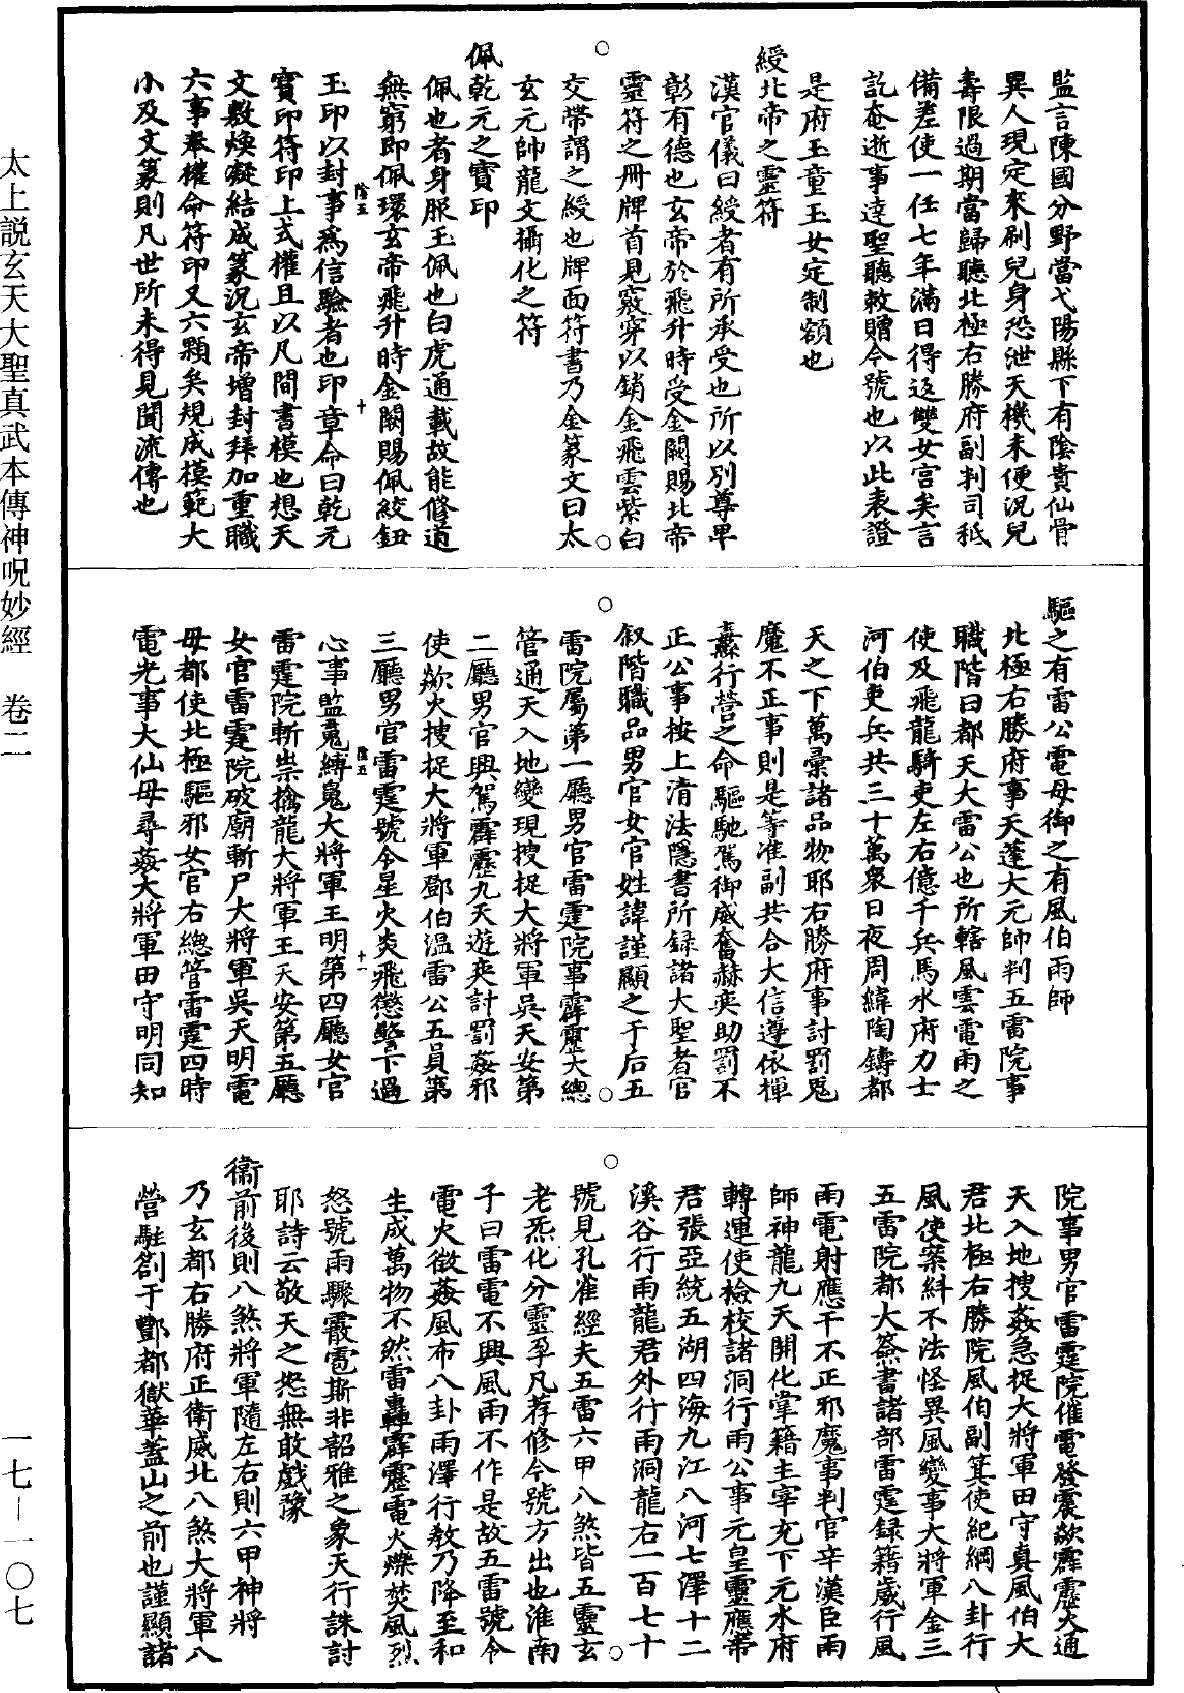 監言陳國分野當弋陽縣下有陰貴仙骨
異人現定來刷兒身恐泄天機未便況兒
壽限過期當歸聽北極右勝府副判司秖
備差使一任七年滿日得返雙女宮矣言
訖奄逝事達聖聽敕贈今號也以此表證
是府玉童玉女定制額也
綬北帝之靈符
漢官儀曰綬者有所承受也所以別尊卑
彰有德也玄帝於飛升時受金闕賜北帝
靈符之冊牌首見竅穿以銷金飛雲紫白
交帶謂之綬也牌面符書乃金篆文曰太
玄元帥龍文攝化之符
佩乾元之寶印
佩也者身服玉佩也白虎通載故能修道
無窮即佩環玄帝飛升時金闕賜佩絞鈕
陰五
十
玉印以封事為信驗者也印章命曰乾元
寶印符印上式權且以凡間書模也想天
文敷煥凝結成篆況玄帝增封拜加重職
六事奉權命符印又六顆矣規成模範大
小及文篆則凡世所未得見聞流傳也
驅之有雷公電母御之有風伯雨師
北極右勝府事天蓬大元帥判五雷院事
職階曰都天大雷公也所轄風雲電雨之
使及飛龍騎吏左右億千兵馬水府力士
河伯吏兵共三十萬眾日夜周緯陶鑄都
天之下萬彙諸品物耶右勝府事討罰鬼
魔不正事則是等准副共合大信遵依揮
纛行營之命驅馳駕御威奮赫奕助罰不
正公事按上清法隱書所録諸大聖者官
叙階職品男官女官姓諱謹顯之于后五
雷院屬第一廳男官雷霆院事霹靂大總
管通天入地變現搜捉大將軍吳天安第
二廳男官興駕霹靂九天遊奕計罰姦邪
使歘火搜捉大將軍鄧伯溫雷公五員第
三廳男官雷霆號令星火炎飛懲警下過
陰五
十一
心事監鬼縛鬼大將軍王明第四廳女官
雷霆院斬祟擒龍大將軍王天安第五廳
女官雷霆院破廟斬尸大將軍吳天明電
母都使北極驅邪女官右總管雷霆四時
電光事大仙母尋姦大將軍田守明同知
院事男官雷霆院催電發震歘霹靂火通
天入地搜姦急捉大將軍田守真風伯大
君北極右勝院風伯副箕使紀綱八卦行
風使案糾不法怪異風變事大將軍金三
五雷院都大簽書諸部雷霆録籍嵗行風
雨電射應干不正邪魔事判官辛漢臣雨
師神龍九天開化掌籍主宰充下元水府
轉運使檢校諸洞行雨公事元皇靈應帝
君張亞統五湖四海九江八河七澤十二
溪谷行雨龍君外行雨洞龍右一百七十
號見孔雀經夫五雷六甲八煞皆五靈玄
老炁化分靈孕凡荐修今號方出也淮南
子曰雷電不興風雨不作是故五雷號令
電火徵姦風布八卦雨澤行敎乃降至和
生成萬物不然雷轟霹靂電火爍焚風烈
怒號雨驟霰雹斯非韶雅之象天行誅討
耶詩云敬天之怒無敢戲豫
衞前後則八煞將軍隨左右則六甲神將
乃玄都右勝府正衛威北八煞大將軍八
營駐劄于酆都獄華蓋山之前也謹顯諸
太上説玄天大聖真武本傳神呪妙經 卷二
一七－一〇七